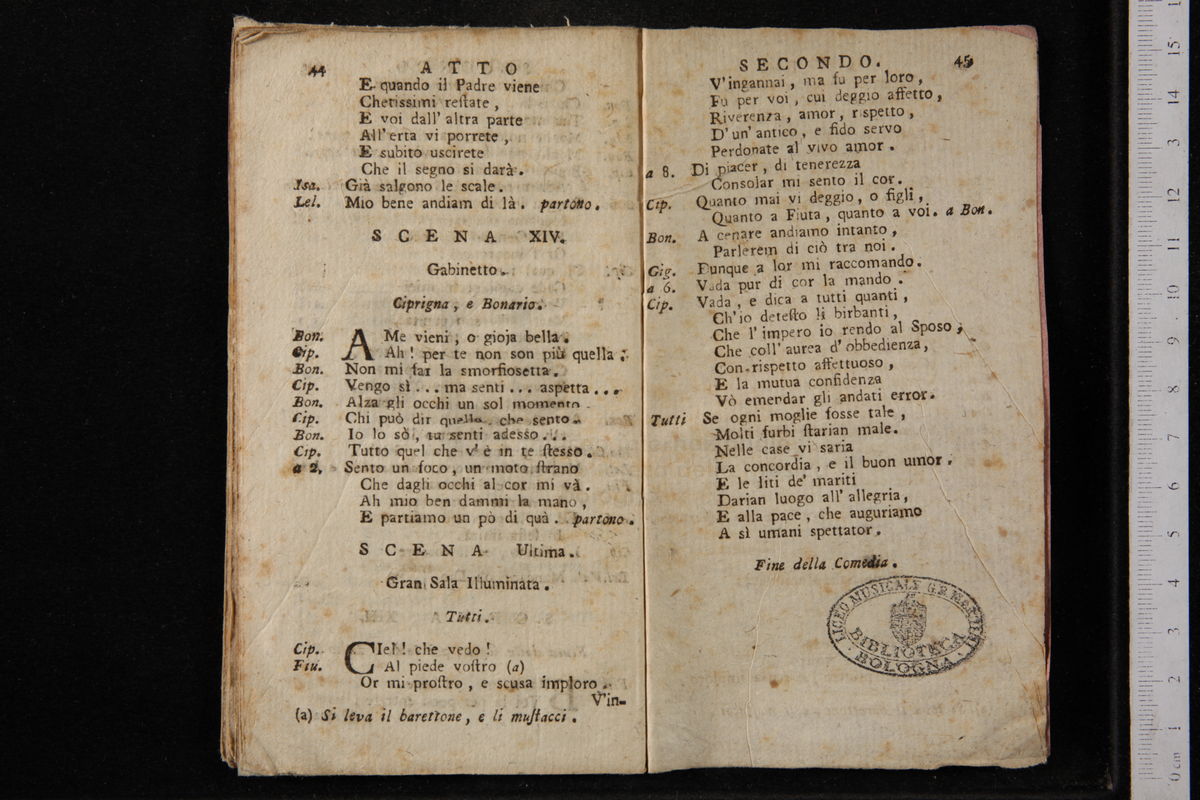 44 ATTO
E quando il Padre viene
Chetissimi reſtate,
E voi dall' altra parte
All' erta vi porrete,
E subito uscirete
Che il segno si darà.
Isa. Già salgono le scale.
Lel. Mio bene andiam di là. partono.
SCENA XIV.
Gabinetto.
Ciprigna, e Bonario.
Bon. A Me vieni, o gioja bella.
Cip. Ah! per te non son più quella.
Bon. Non mi far la smorfiosetta.
Cip. Vengo sì... ma senti... aspetta...
Bon. Alza gli occhi un sol momento.
Cip. Chi può dir quello, che sento.
Bon. Io lo sò, tu senti adesso...
Cip. Tutto quel che v' è in te ſtesso.
a 2. Sento un foco, un moto ſtrano
Che dagli occhi al cor mi và.
Ah mio ben dammi la mano,
E partiamo un pò di quà. partono.
SCENA Ultima.
Gran Sala Illuminata.
Tutti.
Cip. CIel! che vedo!
Fiu. Al piede voſtro (a)
Or mi proſtro, e scusa imploro.
V'in-
(a) Si leva il barettone, e li muſtacci.
SECONDO. 45
V'ingannai, ma fu per loro,
Fu per voi, cui deggio affetto,
Riverenza, amor, rispetto,
D' un' antico, e fido servo
Perdonate al vivo amor.
a 8. Di piacer, di tenerezza
Consolar mi sento il cor.
Cip. Quanto mai vi deggio, o figli,
Quanto a Fiuta, quanto a voi. a Bon.
Bon. A cenare andiamo intanto,
Parlerem di ciò tra noi.
Gig. Dunque a lor mi raccomando.
a 6. Vada pur di cor la mando.
Cip. Vada, e dica a tutti quanti,
Ch'io deteſto li birbanti,
Che l' impero io rendo al Sposo,
Che coll' aurea d' obbedienza,
Con rispetto affettuoso,
E la mutua confidenza
Vò emendar gli andati error.
Tutti Se ogni moglie fosse tale,
Molti furbi ſtarian male.
Nelle case vi saria
La concordia, e il buon umor.
E le liti de' mariti
Darian luogo all' allegria,
E alla pace, che auguriamo
A sì umani spettator.
Fine della Comedia.
LICEO MUSICALE G.B. MARTINI
BIBLIOTECA
BOLOGNA
0 cm 1 2 3 4 5 6 7 8 9 10 11 12 13 14 15